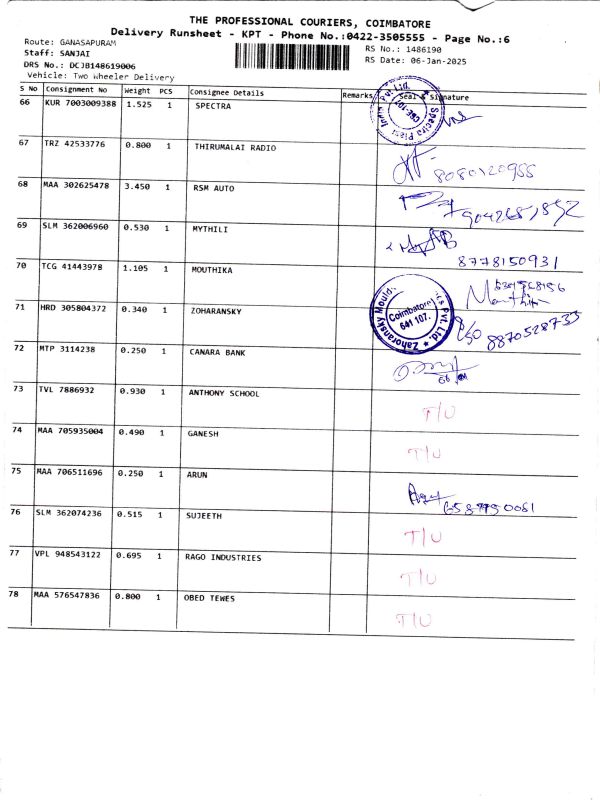 THE PROFESSIONAL COURIERS, COIMBATORE
Delivery Runsheet - KPT - Phone No.:0422-3505555 - Page No.:6
Route: GANASAPURAM
Staff: SANJAI
RS No.: 1486190
DRS No.: DCJB148619006
RS Date: 06-Jan-2025
Vehicle: Two Wheeler Delivery
S No Consignment No Weight PCS Consignee Details Remarks Seal & Signature
66 KUR 7003009388 1.525 1 SPECTRA
Spectra Plast India Pvt. Ltd.
CBE-107
67 TRZ 42533776 0.800 1 THIRUMALAI RADIO
8080120955
68 MAA 302625478 3.450 1 RSM AUTO
69 SLM 362006960 0.530 1 MYTHILI
8778150931
70 TCG 41443978 1.105 1 MOUTHIKA
Mouthika
71 HRD 305804372 0.340 1 ZOHARANSKY
Zahoransky Pvt. Ltd.
Coimbatore
641 107.
8870528733
72 MTP 3114238 0.250 1 CANARA BANK
73 TVL 7886932 0.930 1 ANTHONY SCHOOL
T/U
74 MAA 705935004 0.490 1 GANESH
T/U
75 MAA 706511696 0.250 1 ARUN
76 SLM 362074236 0.515 1 SUJEETH
T/U
77 VPL 948543122 0.695 1 RAGO INDUSTRIES
T/U
78 MAA 576547836 0.800 1 OBED TEWES
T/U